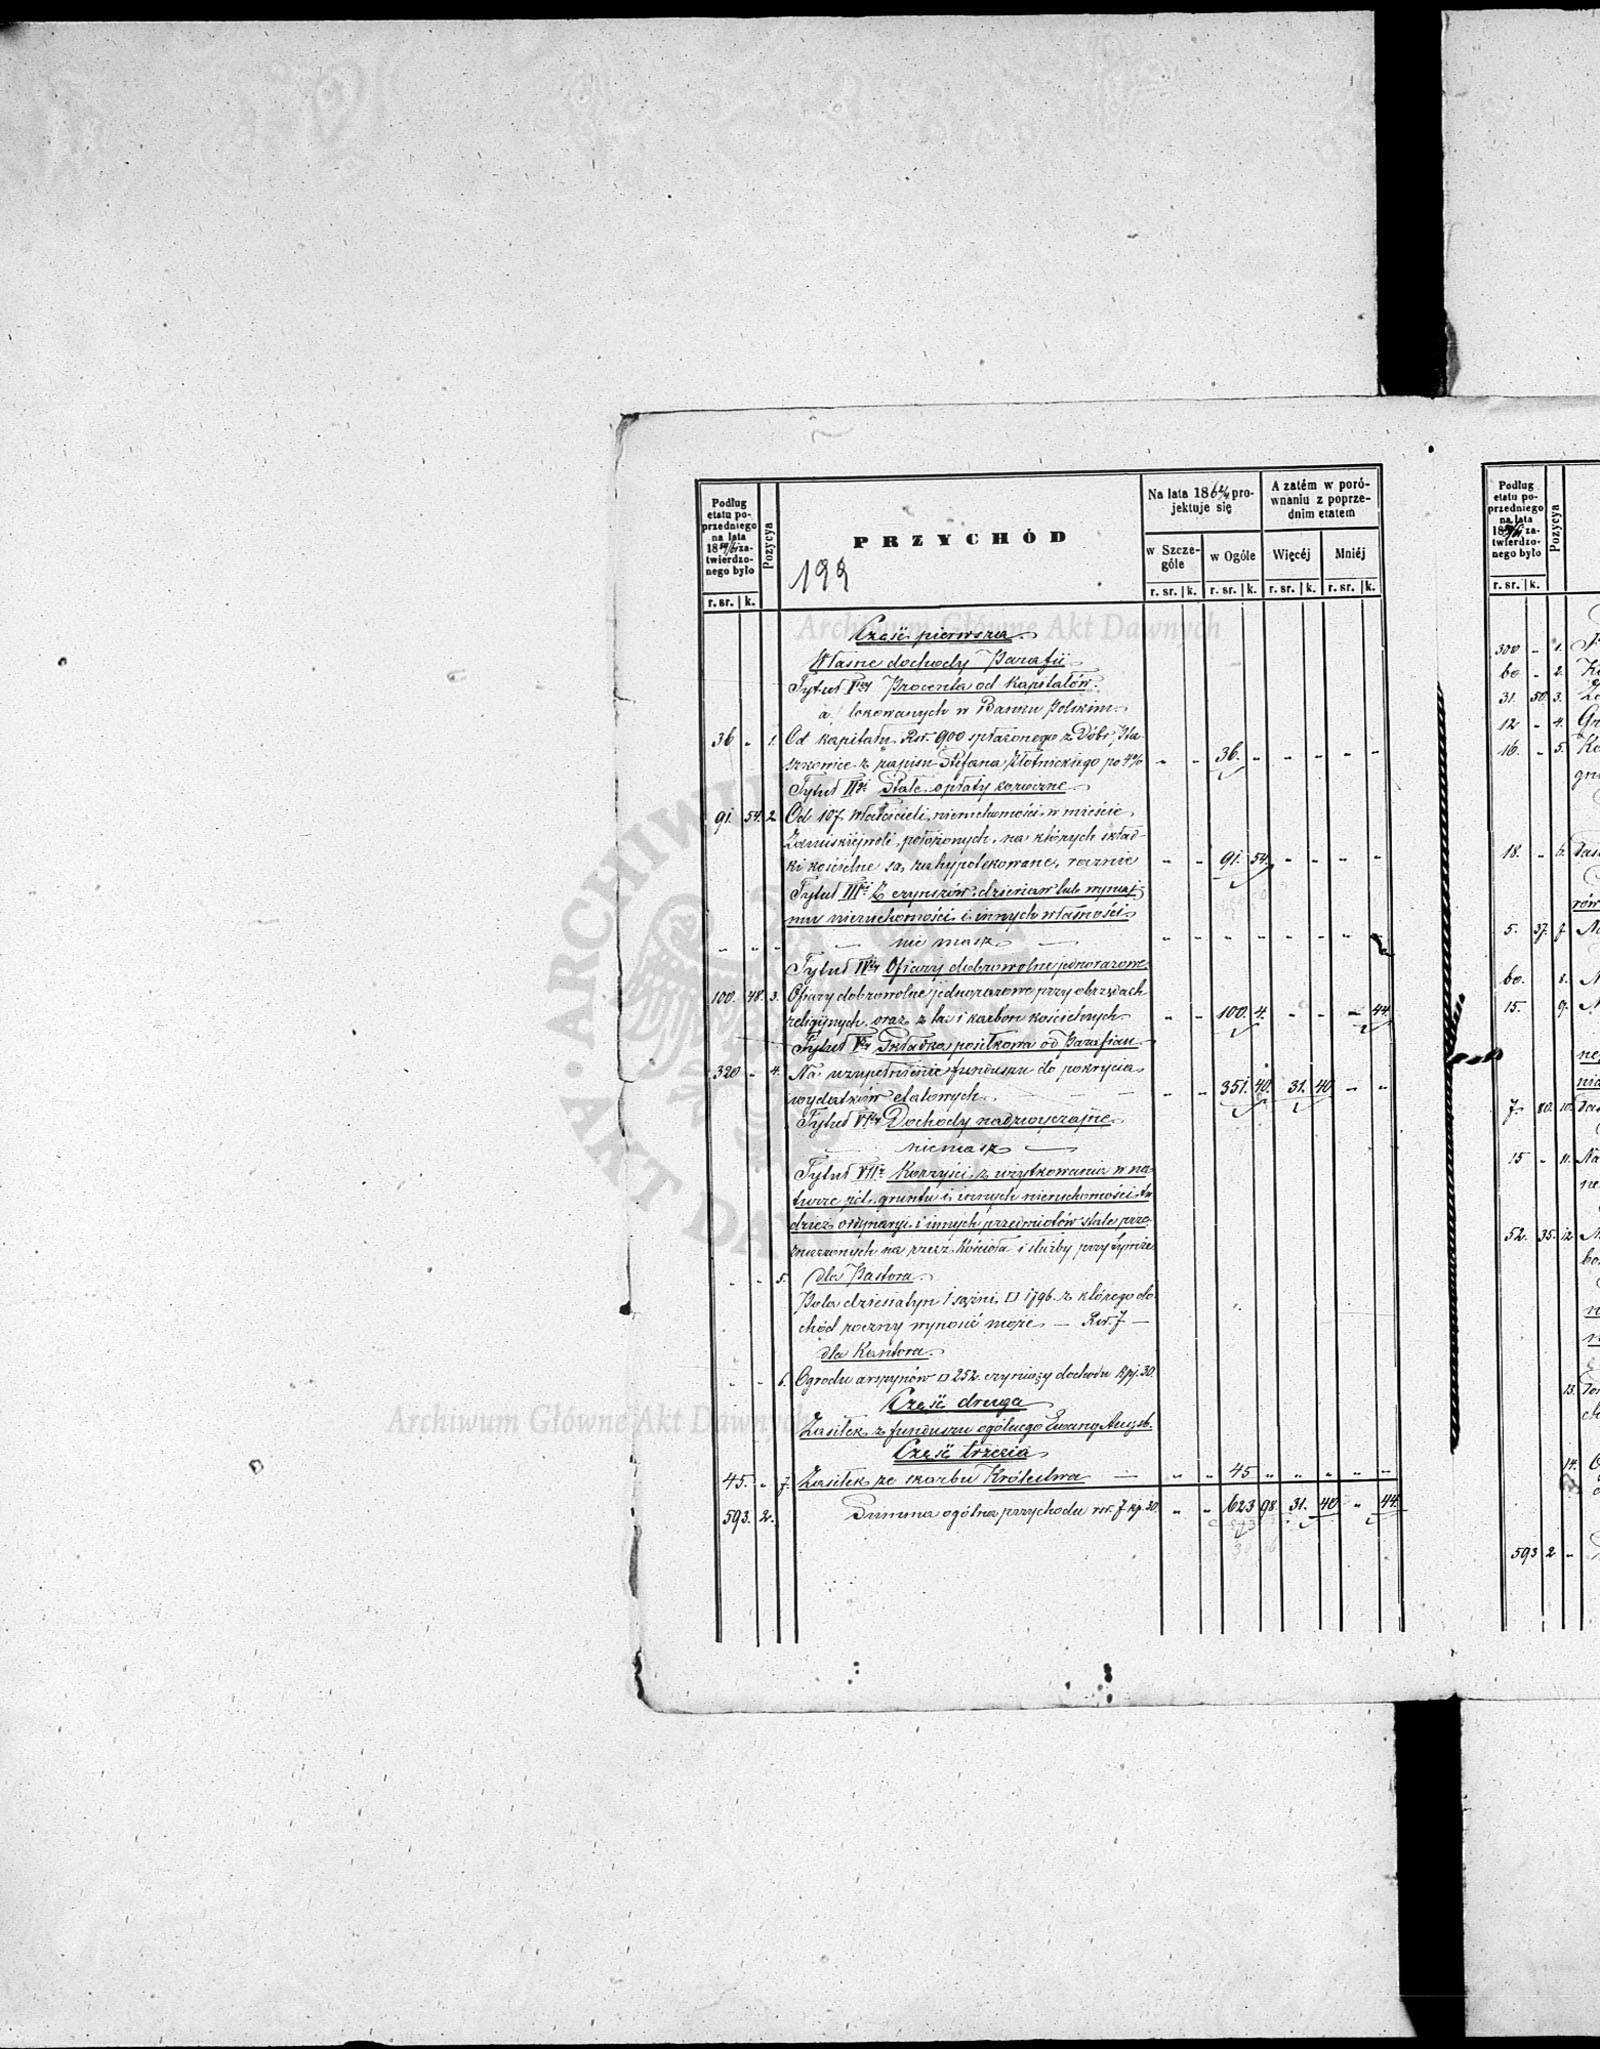 Podług
etatu po-
przedniego
na lata
18 59/61 za-
twierdzo-
nego było
r. sr. | k.
Pozycya
PRZYCHÓD
199
Na lata 186 2/4 pro-
jektuje się
w Szcze-
góle
w Ogóle
r. sr. | k. r. sr. | k.
A zatém w poró-
wnaniu z poprze-
dnim etatem
Więcéj
Mniéj
r. sr. | k. r. sr. | k.
Część pierwsza
Własne dochody Parafii
Tytuł Iszy Procenta od Kapitałów
a/ lokowanych w Banku Polskim
36 " 1. Od kapitału Rsr. 900 spłaconego z Dóbr
z zapisu Stefana Złotnickiego po 4% " " 36. " " " " "
Tytuł IIgi Stałe opłaty koscielne
91. 54. 2. Od 107 Właścicieli nieruchomości w mieście
położonych, na których skład-
ki kościelne są zahypotekowane, rocznie " " 91. 54. " " " "
Tytuł IIIci Z czynszów, dzierżaw lub wynaj-
mu nieruchomości i innych własności
" " " — nie masz — " " " " " " " "
Tytuł IVty Ofiary dobrowolne jednorazowe
100. 48. 3. Ofiary dobrowolne jednorazowe przy obrzędach
religijnych oraz z tac i karbon kościelnych " " 100. 4. " " " 44
Tytuł Vty Składka posiłkowa od Parafian
320 " 4. Na uzupełnienie funduszu do pokrycia
wydatków etatowych — — — " " 351. 40. 31. 40 " "
Tytuł VIty Dochody nadzwyczajne
— niemasz —
Tytuł VII Korzyści z użytkowania w na-
turze ról, gruntu i innych nieruchomości tu-
dzież ordynaryi i innych przedmiotów stale prze-
znaczonych na rzecz Kościoła i służby przy tymże
" " 5. dla Pastora
Pola dziesiatyn 1 sążni □ 1796 z którego do-
chód roczny wynosić może — Rsr. 7 —
dla Kantora
" " 6. Ogrodu □ 252 czyniący dochodu Kp. 30.
Część druga
Zasiłek z funduszu ogólnego Ewang. Augsb.
Część trzecia
45. " 7. Zasiłek ze skarbu Królestwa — " " 45 " " " " "
593. 2. Summa ogólna przychodu rsr. 7 kp. 30 " " 623 98 31. 40 " 44.
Archiwum Główne Akt Dawnych
Archiwum Główne Akt Dawnych
ARCHIWUM
AKT DA
Podług
etatu po-
przedniego
na lata
18 za-
twierdzo-
nego było
r. sr. | k.
Pozycya
300 " 1.
60 " 2.
31. 50. 3.
12 " 4.
16. " 5.
18. " 6.
5. 37. 7.
60. 8.
15. 9.
7. 80. 10.
15 " 11. Na
52. 35. 12
13.
14.
593 2 "